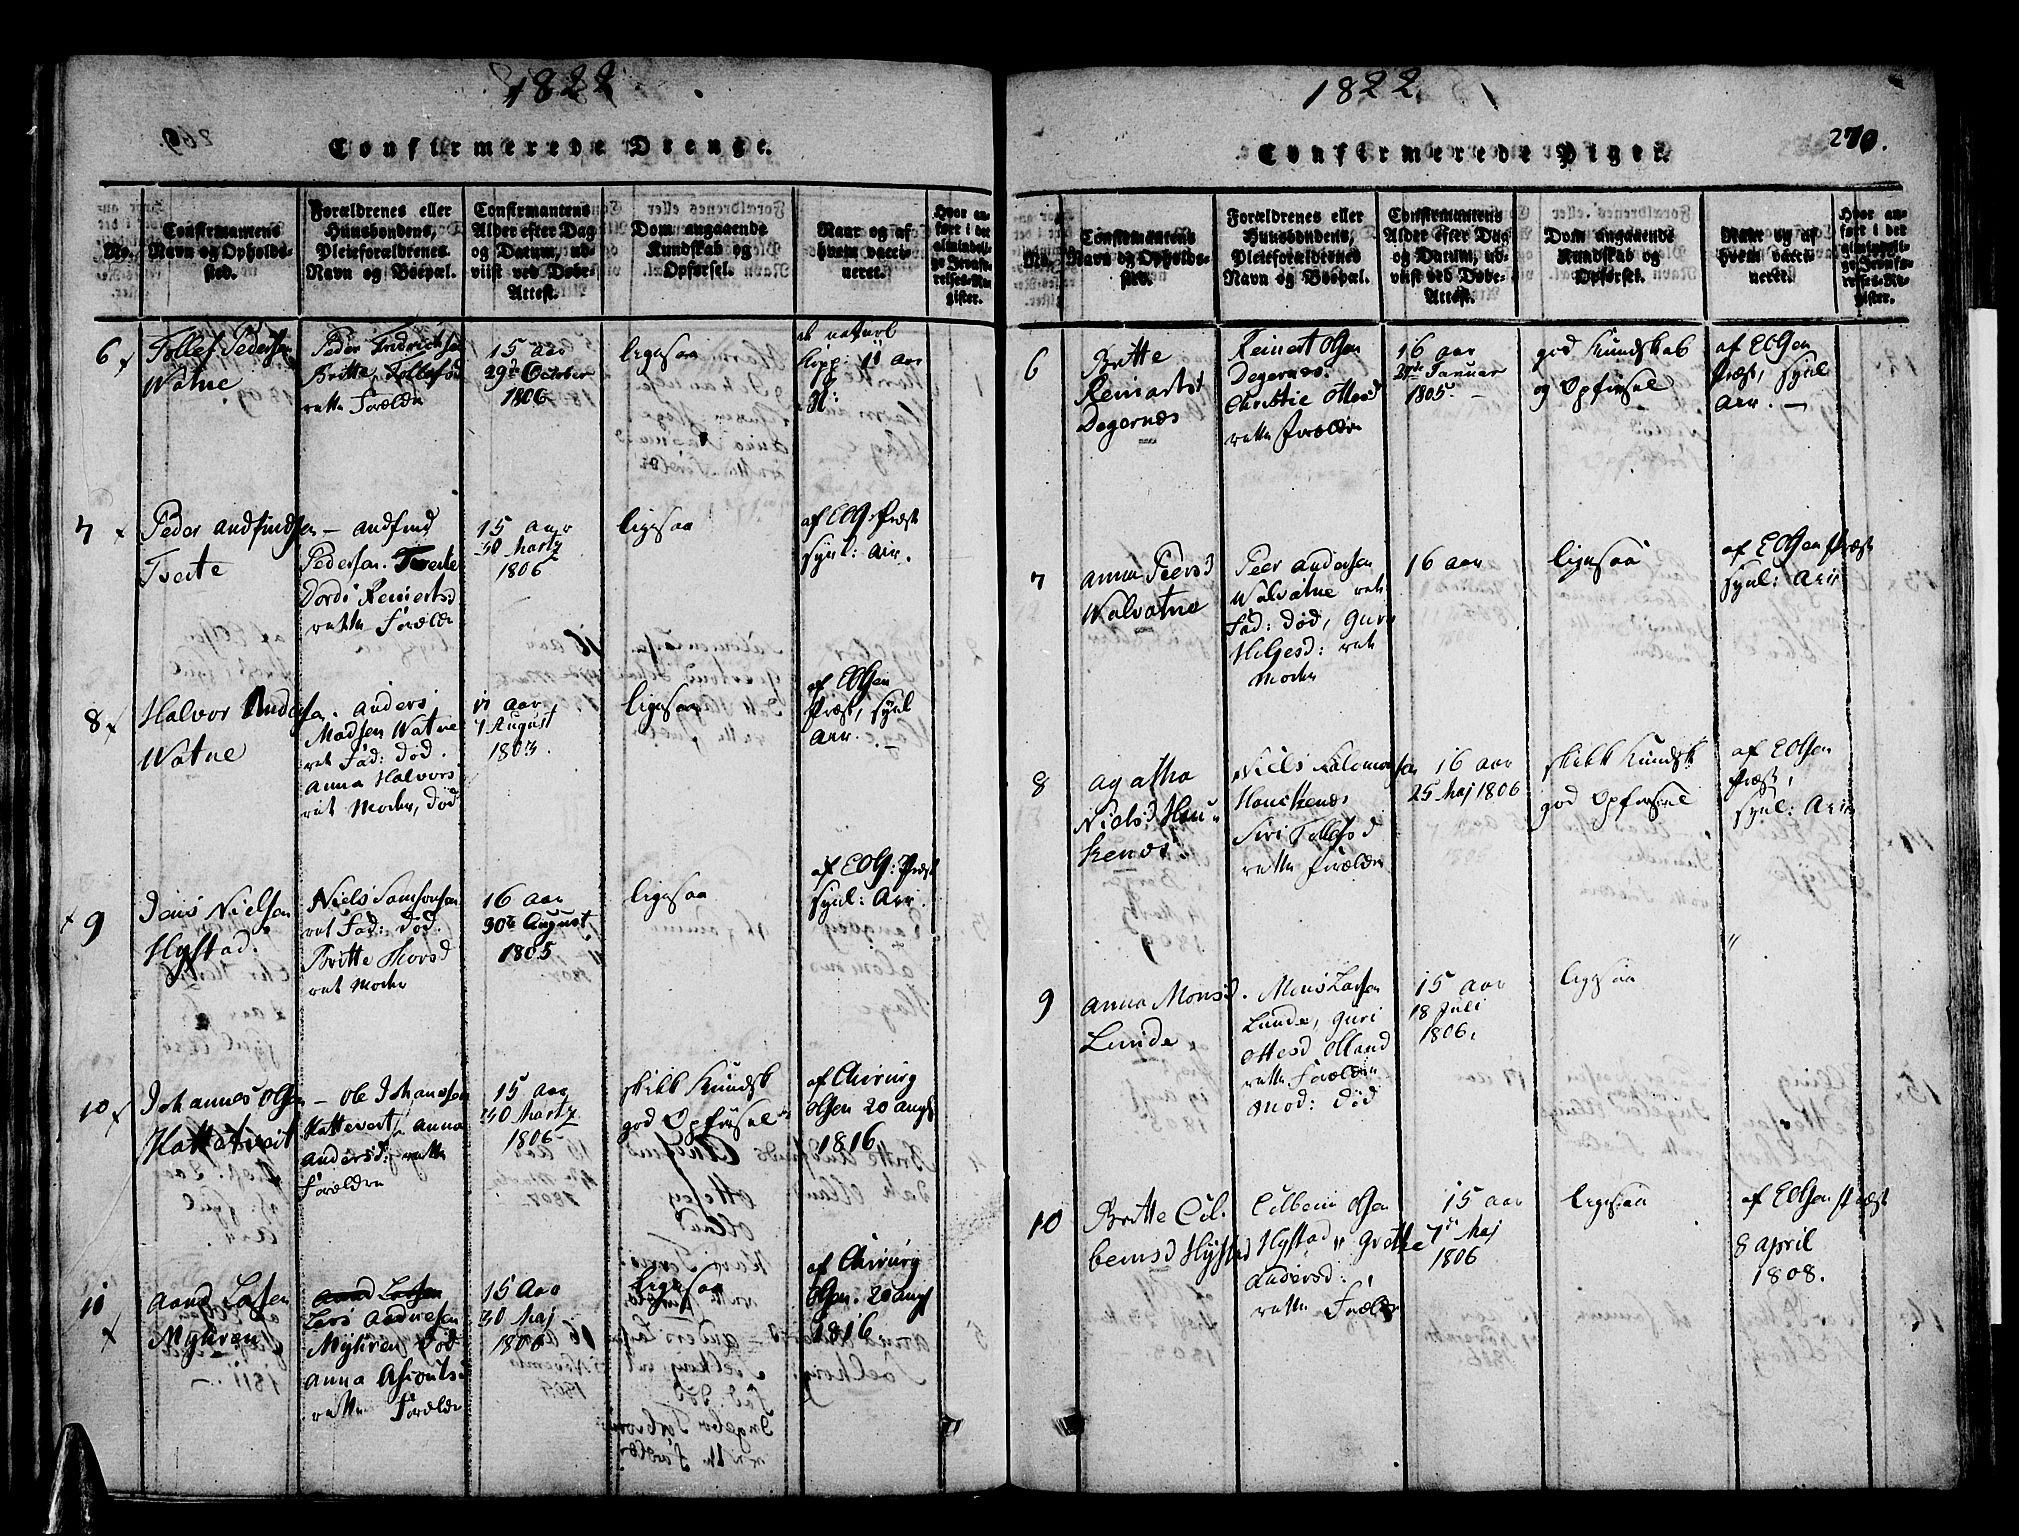 1822
Confirmerede Drenge.
No.
Confirmantens
Navn og Opholds-
sted.
Forældrenes eller
Huusbondens,
Pleieforældrenes
Navn og Boepæl.
Confirmantens
Alder efter Dag
og Datum, ud-
viist ved Døbe-
Attest.
Dom angaaende
Kundskab og
Opførsel.
Naar og af
hvem vacci-
neret.
Hvor an-
ført i det
almindeli-
ge Jevnfø-
relses-Re-
gister.
6
Tollef Pedersen
Watne
Peder Fredrichsen
Britte Tollefsd
rette Forældre
15 aar
29de October
1806
ligesaa
7
Peder Andfindsen
Tveite
Andfind
Pedersen Tveite
Dordi Reinertsd
rette Forældre
15 aar
30 Martz
1806
ligesaa
af EOlG: Præst
Synl: Arr.
8
Halvor Anders
Watne
Anders
Madsen Watne
ret Fad: død.
Anna Halvors
ret Moder, død
August
1803
ligesaa
af EOlsen
Præst, synl
Arr.
9
Jens Nielsen
Hystad.
Niels Samsonsen
ret Fad: død.
Britte Thorsd
ret Moder
16 aar
30te August
1805
ligesaa
af EOlG: Præst
synl: Arr.
10
Johannes Olsen
Hattetveit
Ole Johannesen
Anna
Andersd: rette
Forældre
15 aar
30 Martz
1806
skikk Kundsk
god Opførsel
af Chirurg
Olsen 20 aug
1816
11
Aand Lasen
Myhren
Lars Andersen
Myhren død
Anna
rette Forældre
15 Aar
30 Maj
1806
ligesaa
af Chirurg
Olsen. 20 aug
1816
1822.
270.
Confirmerede Piger.
No.
Confirmantens
Navn og Opholds-
sted.
Forældrenes eller
Huusbondens,
Pleieforældrenes
Navn og Boepæl.
Confirmantens
Alder efter Dag
og Datum, ud-
viist ved Døbe-
Attest.
Dom angaaende
Kundskab og
Opførsel.
Naar og af
hvem vacci-
neret.
Hvor an-
ført i det
almindeli-
ge Jevnfø-
relses-Re-
gister.
6
Britte
Reinertsd
Degernæs
Reinert Olsen
Degernæs.
Christie Ottesd
rette Forældre
16 aar
Januar
1805.
god Kundskab
og Opførsel
af EOlsen
Præst, synl
Arr.
7
Anna Peersd
Walvatne
Peer Andersen
Walvatne ret
Fad: død, Guri
Helgesd: ret
Moder
16 aar
ligesaa
af EOlsen Præst
synl: Arr
8
Agatha
Nielsd Hau-
kenæs.
Niels Salomonsen
Haukenæs
Siri Tollefsd
rette Forældre
16 aar
25 Maj 1806
skikk Kundsk
god Opførsel
af EOlsen
Præst,
synl: Arr
9
Anna Monsd.
Lunde.
Mons Larsen
Lunde, Guri
Ottesd Olland
rette Forældre
Mod: død
15 aar
18 Juli
1806.
ligesaa
"
10
Britte Eil-
bensd Hystad
Eilbein Olsen
Hystad Grethe
Andersd:
rette Forældre
15 aar
7de Maj
1806
ligesaa
af EOlsen Præst
8 April
1808.